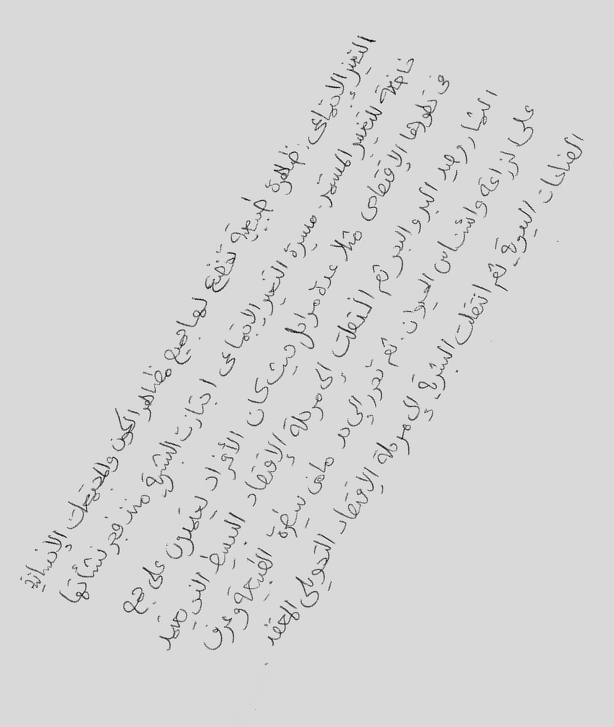 التغير الاجتماعى. ظاهرة طبيعية تخضع لها جميع مظاهر الكون والمجتمعات الإنسانية
خاضعة للتغير المستمر. مسيرة التغير الاجتماعى اجتازت البشرية منذ فجر نشأتها
فى تطورها الاقتصادى مثلا عدة مراحل حيث كان الأفراد يعتمدون على جمع
الثمار وصيد البر والبحر ثم انتقلت إلى مرحلة الاقتصاد البسيط الذى يعتمد
على الزراعة واستئناس الحيوان. ثم تحرر إلى حد ما من سيطرة الطبيعة وعرف
الصناعات اليدوية ثم انتقلت البشرية إلى مرحلة الاقتصاد التحويلى المعقد.